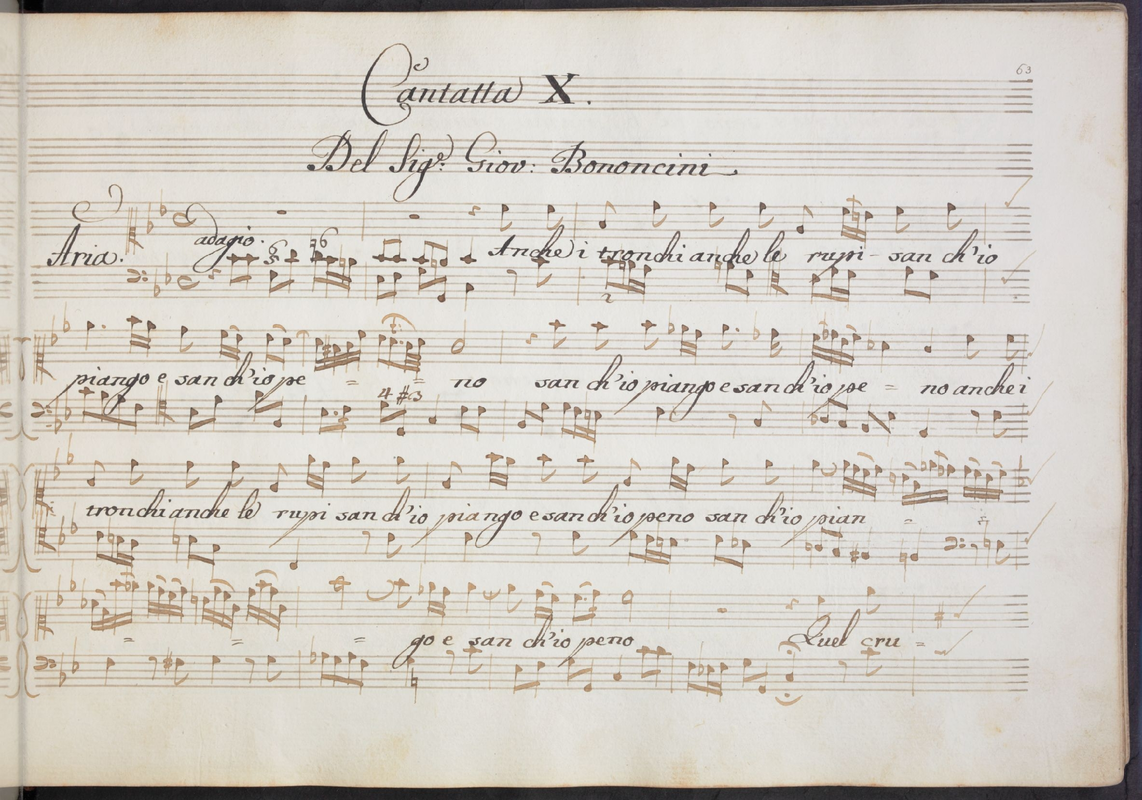 63
Cantatta X.
Del Sig.e Giov: Bononcini
adagio.
Aria. Anche i tronchi anche le rupi - san ch'io
piango e san ch'io pe = = no san ch'io piango e san ch'io pe = no anche i
tronchi anche le rupi san ch'io piango e san ch'io peno san ch'io pian = =
= = = go e san ch'io peno Quel cru =